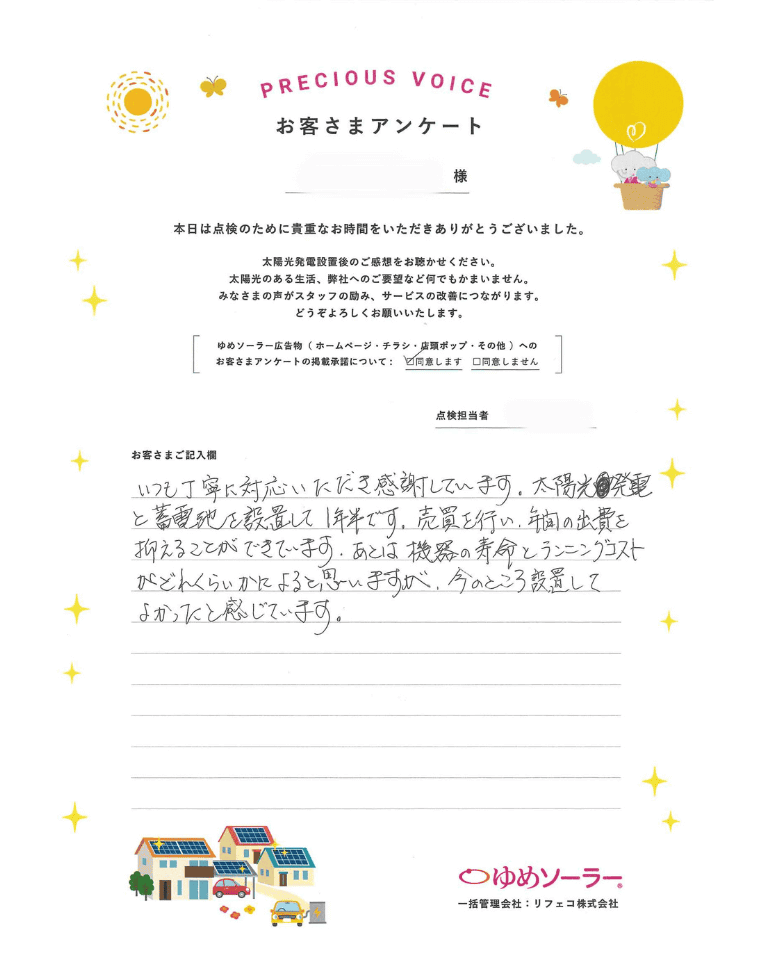 PRECIOUS VOICE
お客さまアンケート
様
本日は点検のために貴重なお時間をいただきありがとうございました。
太陽光発電設置後のご感想をお聴かせください。
太陽光のある生活、弊社へのご要望など何でもかまいません。
みなさまの声がスタッフの励み、サービスの改善につながります。
どうぞよろしくお願いいたします。
ゆめソーラー広告物（ ホームページ・チラシ・店頭ポップ・その他 ）への
お客さまアンケートの掲載承諾について： ☑同意します ☐同意しません
点検担当者
お客さまご記入欄
いつも丁寧に対応いただき感謝しています。太陽光発電
と蓄電池を設置して1年半です。売買を行い、年間の出費を
抑えることができています。あとは機器の寿命とランニングコスト
がどれくらいかによると思いますが、今のところ設置して
よかったと感じています。
ゆめソーラー®
一括管理会社：リフェコ株式会社